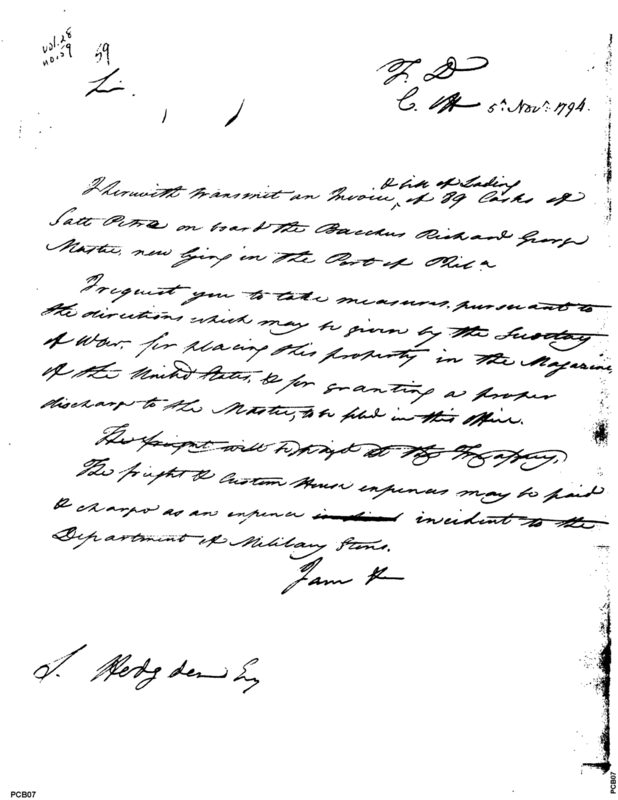 vol. 28
no. 59
59
T. D
C. O 5th Novr. 1794.
Sir.
I herewith transmit an Invoice, & bill of Lading of 89 Casks of
Salt Petre on board the Bacchus Richard George
Master, now lying in the Port of Phila
I request you to take measures, pursuant to
the directions which may be given by the Secretary
of War, for placing this property in the Magazine
of the United States, & for granting a proper
discharge to the Master, to be filed in this Office.
The freight will be paid at the Treasury.
The freight & Custom House expences may be paid
& charged as an expence incident to the
Department of Military Stores.
I am &
S. Hodgden Esq
PCB07
PCB07